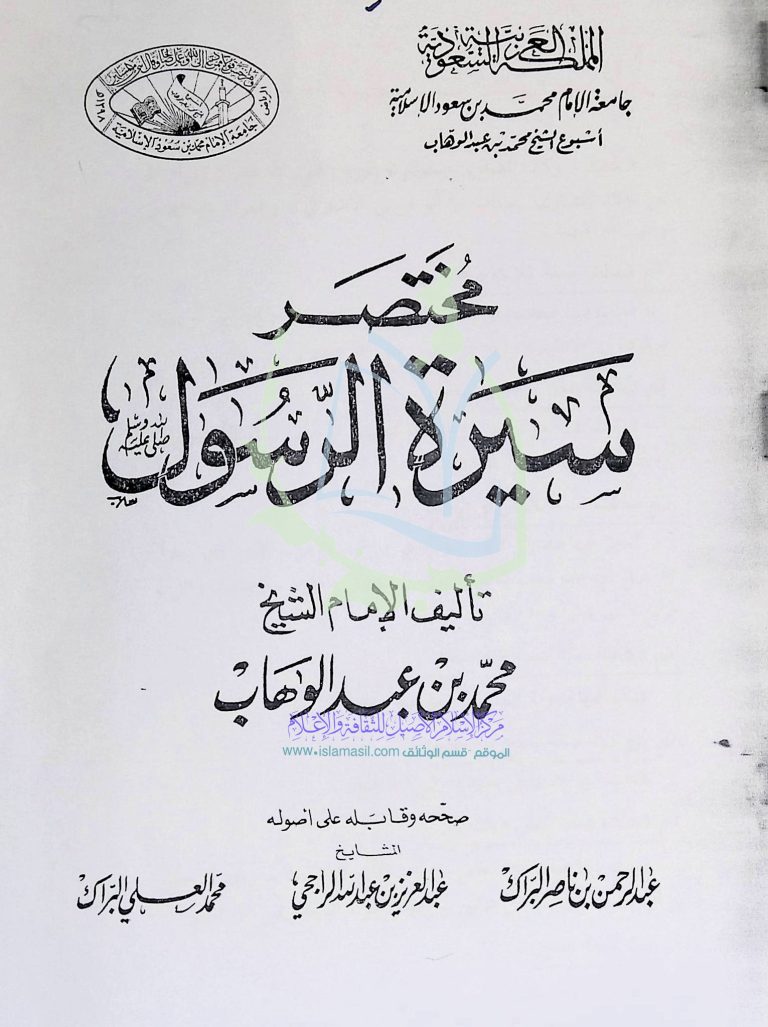 المملكة العربية السعودية
جامعة الإمام محمد بن سعود الإسلامية
أسبوع الشيخ محمد بن عبد الوهاب
جامعة الإمام محمد بن سعود الإسلامية
مختصر
سيرة الرسول
صلى الله عليه وسلم
تأليف الإمام الشيخ
محمد بن عبد الوهاب
مركز الإسلام الأصيل للثقافة والإعلام
الموقع - قسم الوثائق www.islamasil.com
صححه وقابله على أصوله
المشايخ
عبد الرحمن بن ناصر البراك
عبد العزيز بن عبد الله الراجحي
محمد العلي البراك